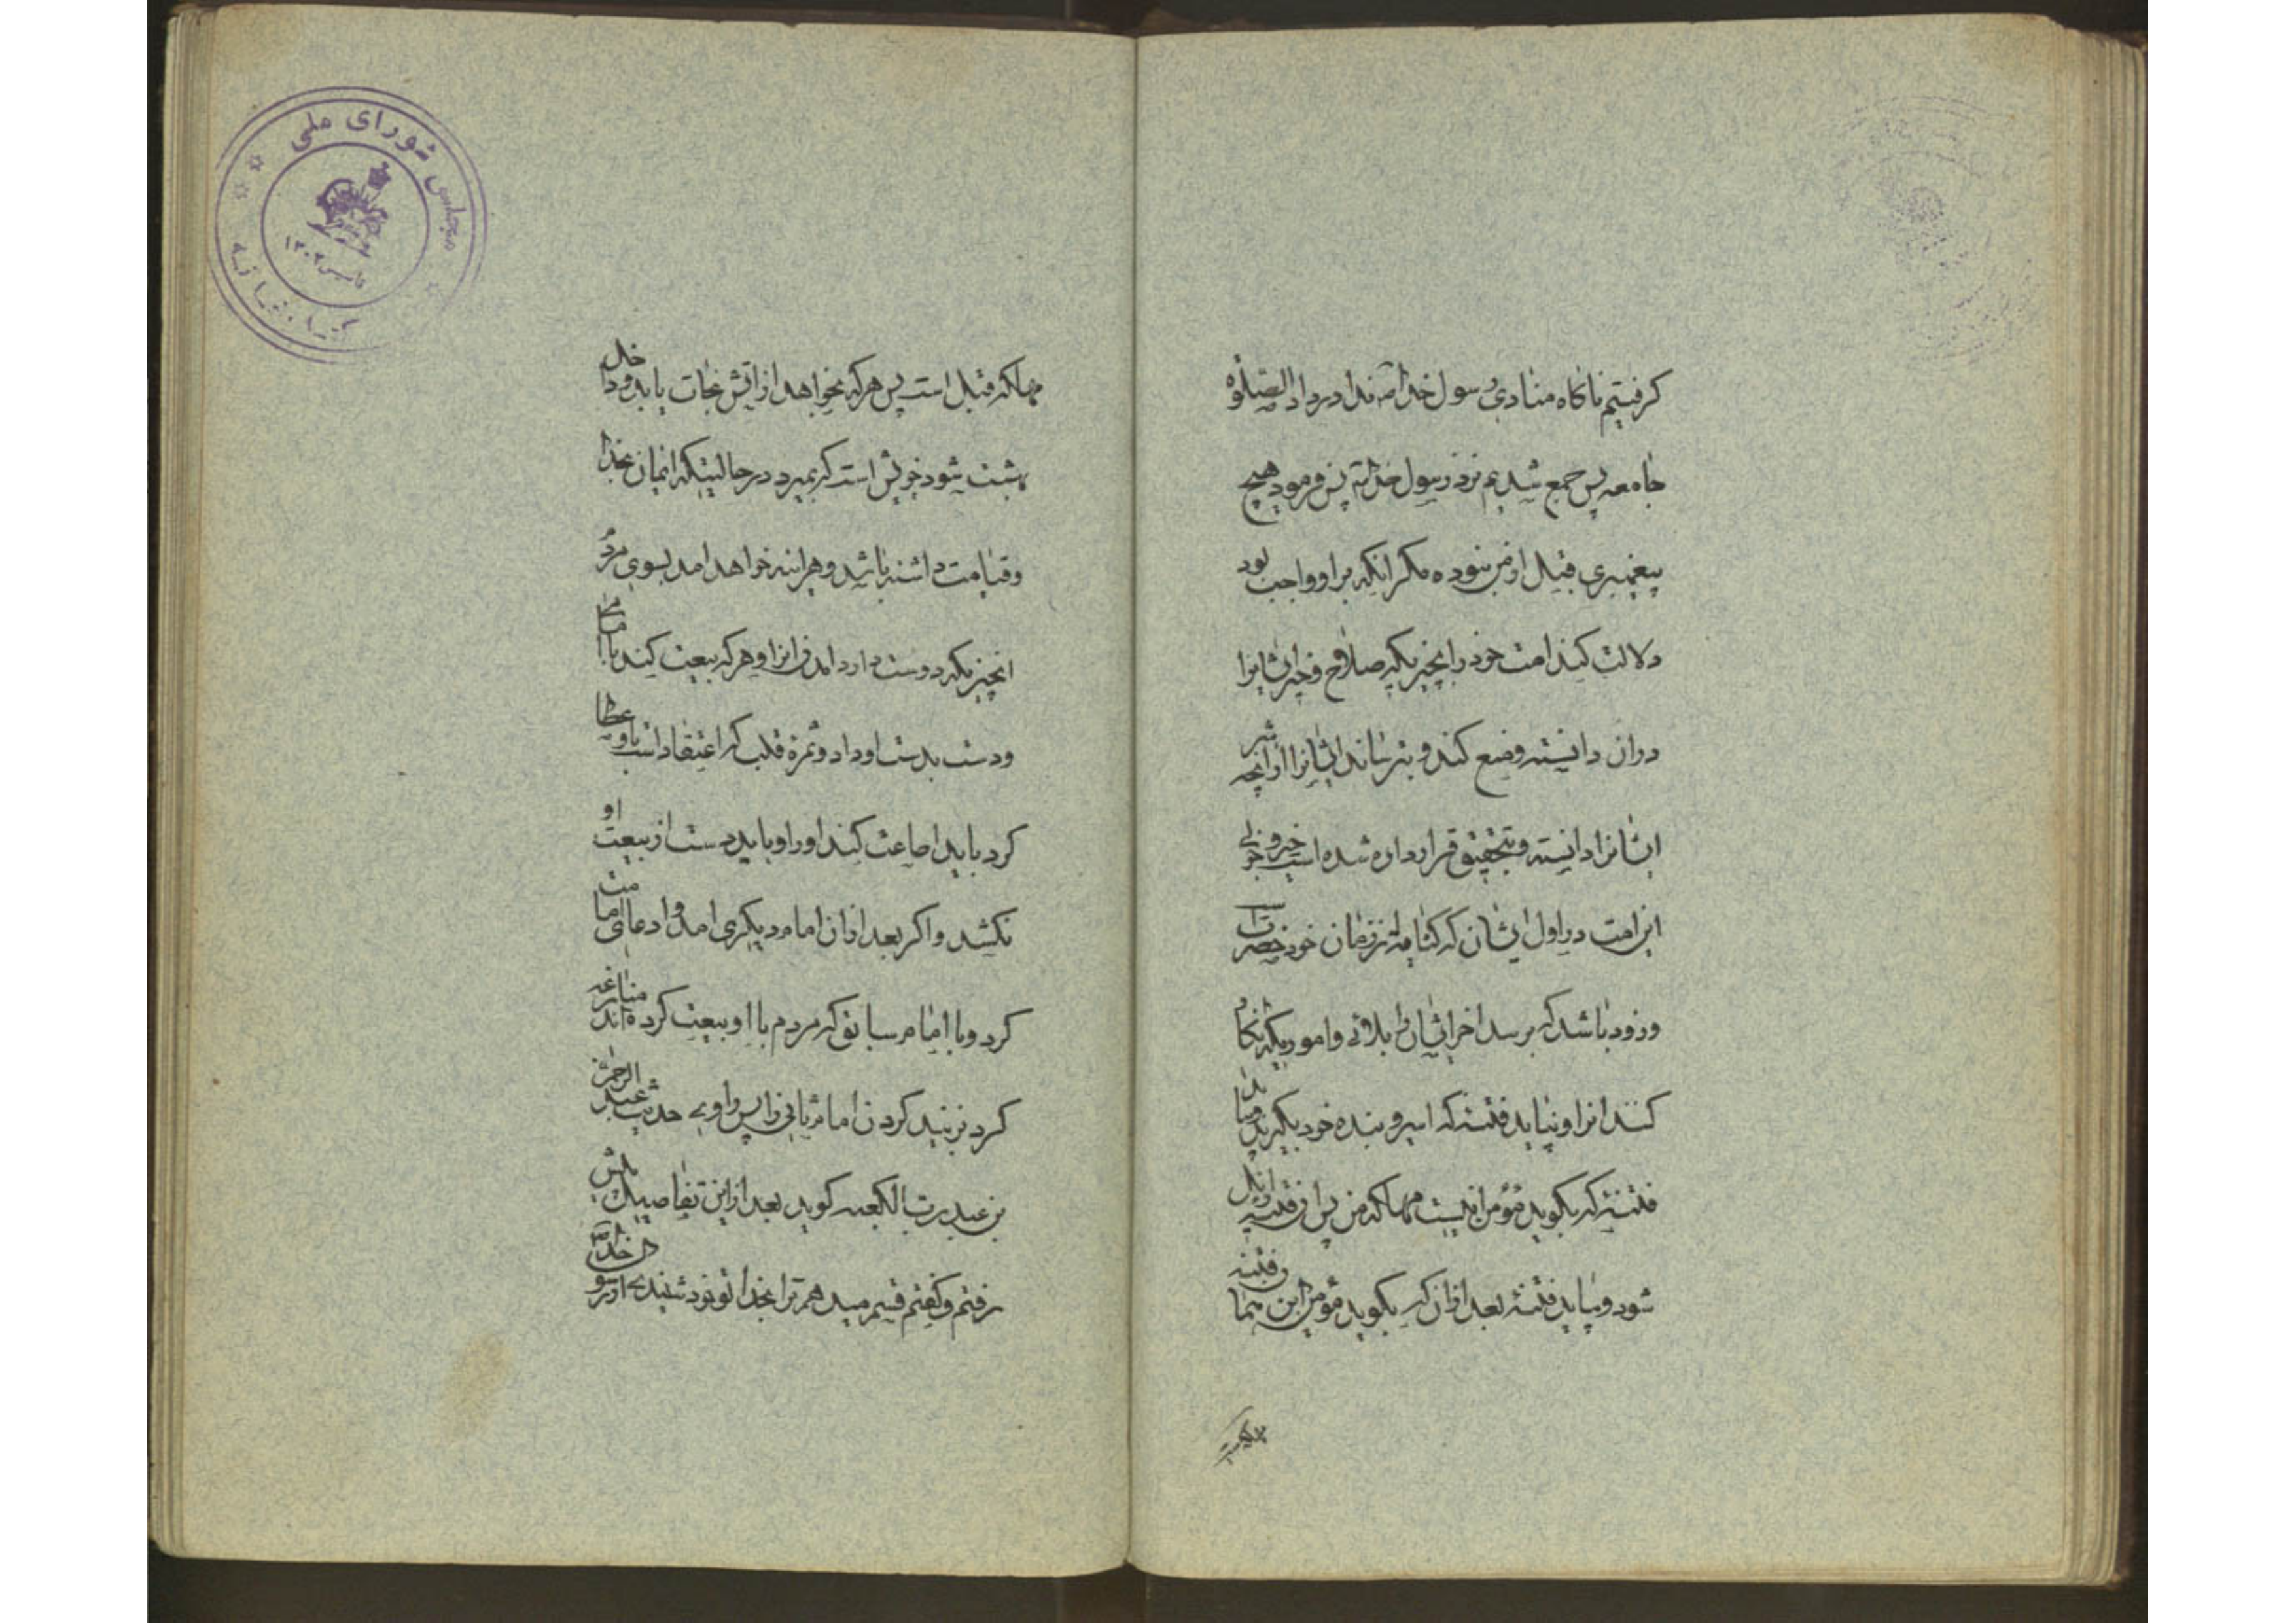 کرفتیم ناکاه منادی رسول خدا ص ندا درداد الصلوة
جامعه پس جمع شدیم نزد رسول خدا ص پس فرمود هیچ
پیغمبری قبل از من نبوده مکر انکه بر او واجب بود
دلالت کند امت خود را بچیزیکه صلاح و خیر ایشانرا
دران دانسته وضع کند و بترساند ایشانرا از انچه شر
ایشانرا دانسته و بتحقیق قرار داده شده است خیر و خوبی
این امت در اول ایشان که کنایه از زمان خود حضرت
و زود باشد که برسد اخر ایشان را بلائی و اموریکه
کنند انرا و بیاید فتنه که اسیر و بنده خود بکیرد
فتنه که بکوید مؤمن اینست مهلکه من پس ان فتنه زایل
شود و بیاید فتنه بعد ازان که بکوید مؤمن این فتنه
مهلکه
مهلکه قبل است پس هرکه بخواهد از اتش نجات یابد و داخل
بهشت شود خویش است که بمیرد در حالیتکه ایمان بخدا
و قیامت داشته باشد و هراینه خواهد امد بسوی مردم
انچیزیکه دوست دارد امدن انرا و هرکه بیعت کند با امامی
و دست بدست او داد و ثمرة قلب که اعتقاد است باو عطا
کرد باید اطاعت کند او را و باید دست از بیعت او
نکشد و اکر بعد ازان امام دیکری امد و ادعای امامت
کرد و با امام سابق که مردم با او بیعت کرده اند منازعه
کرد بزنید کردن امام ثانی را پس راوی حدیث عبد الرحمن
بن عبد رب الکعبه کوید بعد از این تفاصیل پیش
رفتم و کفتم قسم میدهم ترا بخدا تو خود شنیدی از رسول خدا ص
مجلس شورای ملی
کتابخانه
تاسیس ۱۳۰۲